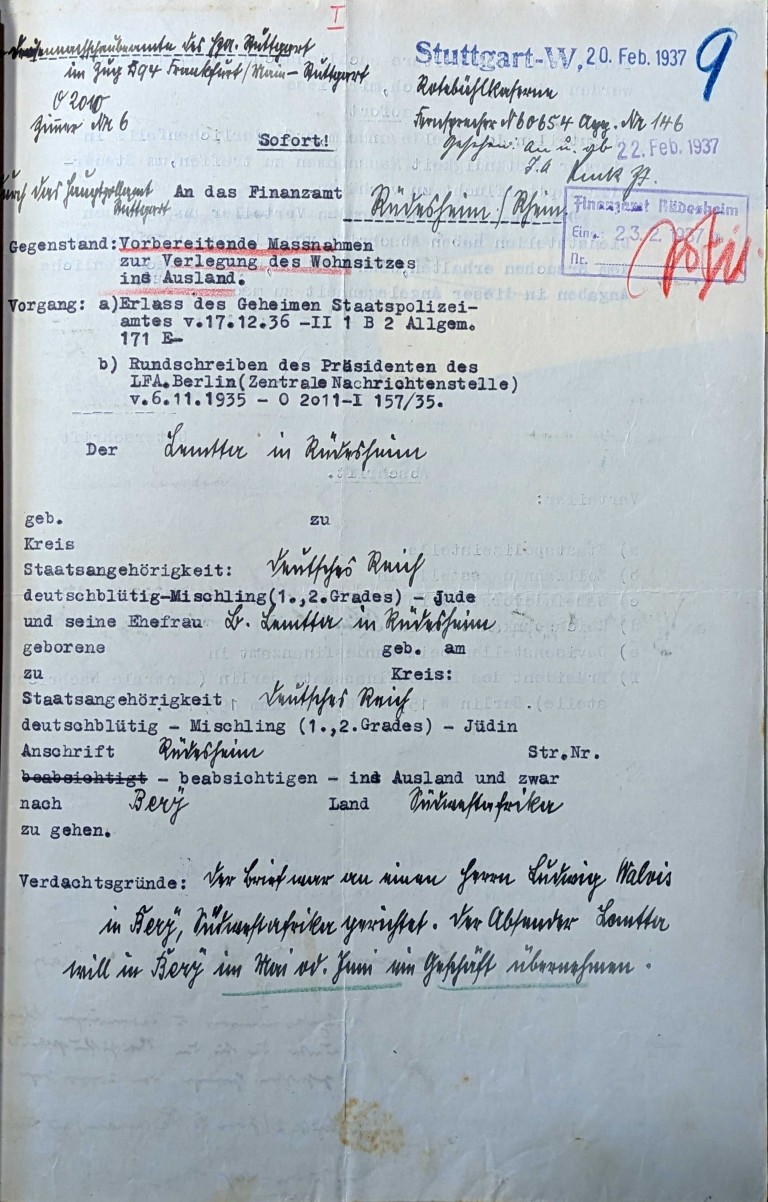 I
des Hpa. Stuttgart
im Zug D 94 Frankfurt/Main - Stuttgart
O 2010
Zimmer Nr 6
Stuttgart-W, 20. Feb. 1937
9
Rotebühlkaserne
Fernsprecher N 60654 App. Nr 146
Gesehen: An u. gb
22. Feb. 1937
J.A.
Sofort!
durch das Hauptzollamt Stuttgart
An das Finanzamt Rüdesheim / Rhein
Finanzamt Rüdesheim
Ein. 23.2.1937
Nr.
Gegenstand: Vorbereitende Massnahmen
zur Verlegung des Wohnsitzes
ins Ausland.
Vorgang: a)Erlass des Geheimen Staatspolizei-
amtes v.17.12.36 -II 1 B 2 Allgem.
171 E-
b) Rundschreiben des Präsidenten des
LFA.Berlin(Zentrale Nachrichtenstelle)
v.6.11.1935 - O 2011-I 157/35.
Der Lemtta in Rüdesheim
geb. zu
Kreis
Staatsangehörigkeit: Deutsches Reich
deutschblütig-Mischling(1.,2.Grades) - Jude
und seine Ehefrau B. Lemtta in Rüdesheim
geborene geb. am
zu Kreis:
Staatsangehörigkeit Deutsches Reich
deutschblütig - Mischling (1.,2.Grades) - Jüdin
Anschrift Rüdesheim Str.Nr.
beabsichtigt - beabsichtigen - ins Ausland und zwar
nach Land Südwestafrika
zu gehen.
Verdachtsgründe: Der Brief war an einen Herrn Ludwig Walois
in Südwestafrika gerichtet. Der Absender Lemtta
will in im Mai od. Juni ein Geschäft übernehmen.